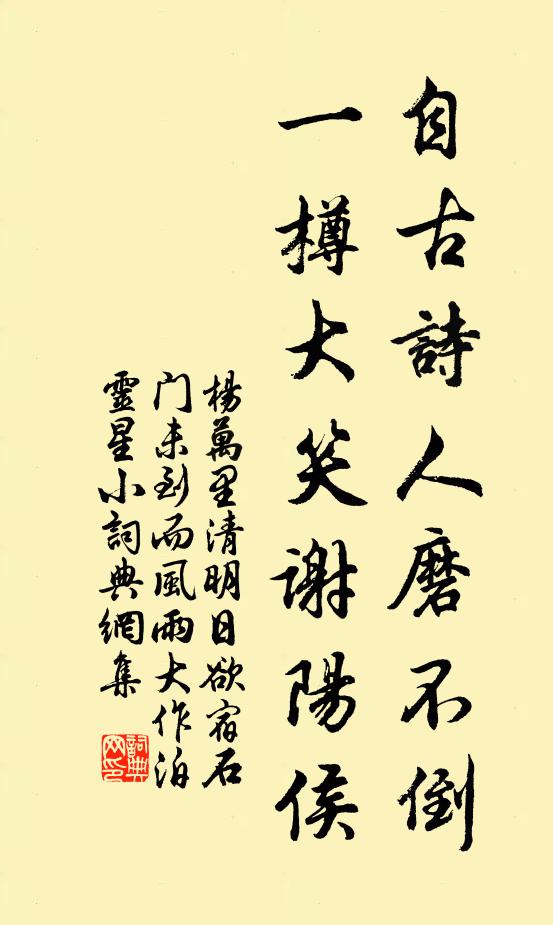 自古詩人磨不倒
一樽大笑谢陽侯
楊萬里清明日欲宿石
门未到而風雨大作泊
靈星小詞典網集
詞典
网印